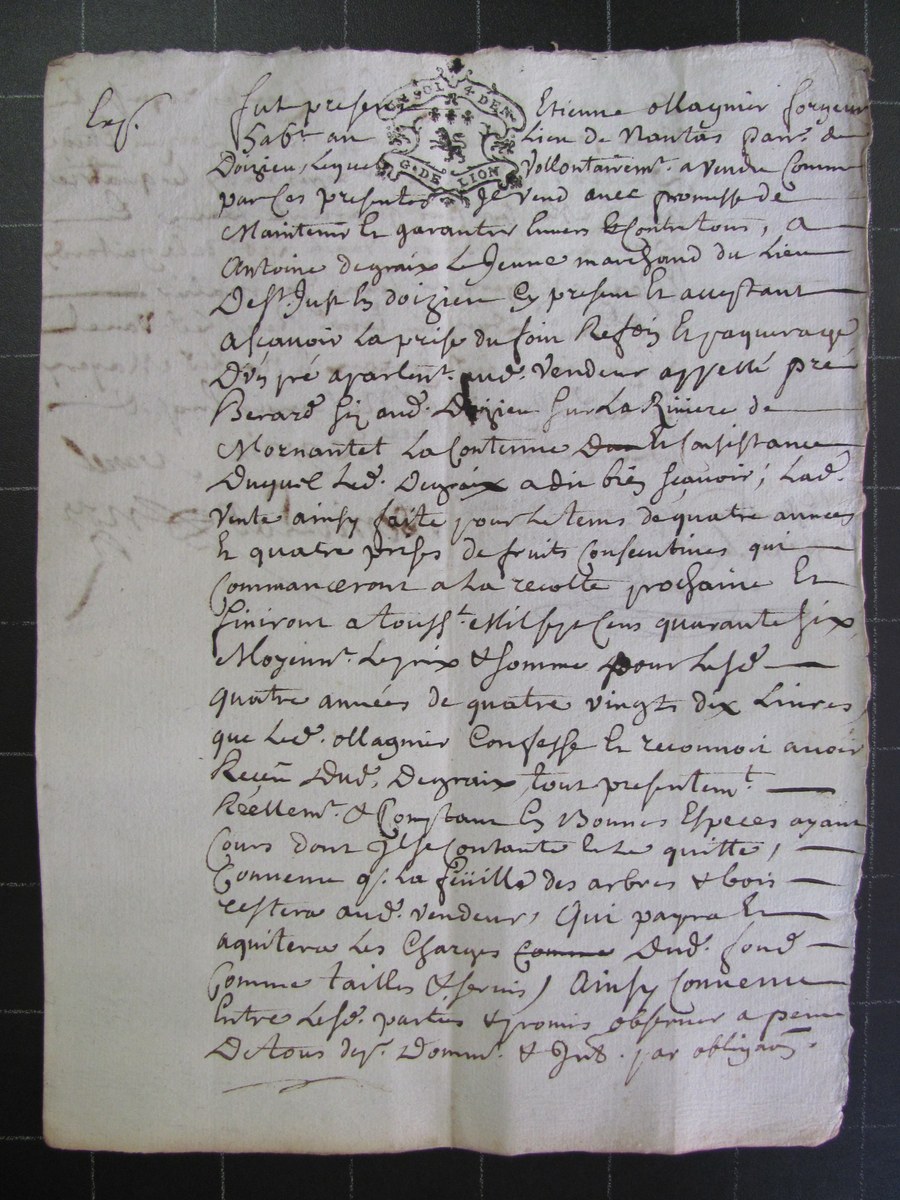 Exp.
fut present Etienne Ollagnier forgeur
habt. au Lieu de Nantas parr. de
Doizieu, Lequel Vollontairemt. a vendu Comme
par Ces presentes Il vend avec promesse de
Maintenir Et garantir Envers & Contre tous, A
Antoine degraix Le Jeune marchand du Lieu
De st. Just En doizieu Cy present Et acceptant
asçavoir La prise du foin Refoin Et paquerage
D'un pré apartent. aud. Vendeur appellé pré
Berard Siz aud. Doizieu sur La Riviere de
Mornantet La Contenue Et Consistance
Duquel Led. Degraix a dit bien sçavoir; Lad.
Vente ainsy faite pour Le tems de quatre années
Et quatre prises de fruits Consecutives qui
Commanceront a La recolte prochaine Et
finiront a touss.t Mil sept Cens quarante six
Moyennt. Le prix & Somme pour Lesd.
quatre années de quatre vingts dix Livres,
que Led. Ollagnier Confesse Et reconnoit avoir
Receu Dud. Degraix tout presentemt.
Réellemt. & Comptant En Bonnes Especes ayant
Cours dont Il se Contante Et Le quitte,
Convenu q. La feüille des arbres & bois
restera aud. Vendeur, Qui payra Et
aquitera Les Charges Comme Dud. fond
Comme tailles & servis, Ainsy Convenu
Entre Lesd. parties & promis observer a peine
De tous dep. Domm. & Int. par obligaon.
SOL 4 DEN
G. DE LION